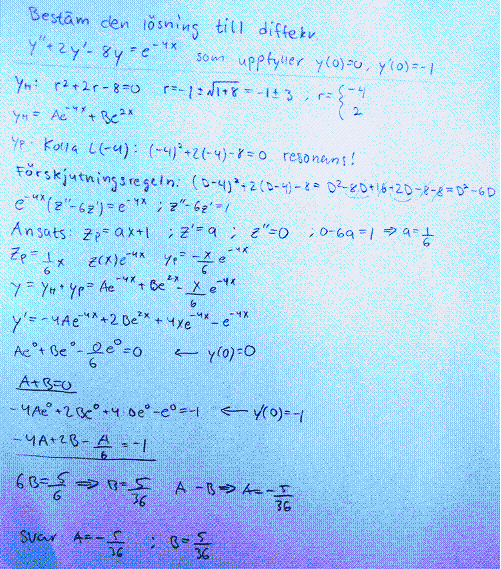 Bestäm den lösning till diffekv.
y''+2y'-8y=e^-4x som uppfyller y(0)=0, y'(0)=-1
y_H: r²+2r-8=0 r=-1±√1+8=-1±3, r={-4 2
y_H = Ae^-4x+Be^2x
y_P: Kolla L(-4): (-4)²+2(-4)-8=0 resonans!
Förskjutningsregeln: (D-4)²+2(D-4)-8=D²-8D+16+2D-8-8=D²-6D
e^-4x(z''-6z')=e^-4x ; z''-6z'=1
Ansats: z_p=ax+1 ; z'=a ; z''=0 ; 0-6a=1 ⇒ a=1/6
z_p=1/6 x z(x)e^-4x y_p=-x/6 e^-4x
y=y_H+y_P=Ae^-4x+Be^2x-x/6 e^-4x
y'=-4Ae^-4x+2Be^2x+4xe^-4x-e^-4x
Ae⁰+Be⁰-0/6 e⁰=0 ← y(0)=0
A+B=0
-4Ae⁰+2Be⁰+4·0e⁰-e⁰=-1 ← y'(0)=-1
-4A+2B- /6=-1
6B=5/6 ⇒ B=5/36 A -B⇒ A=-5/36
svar A=-5/36 ; B=5/36